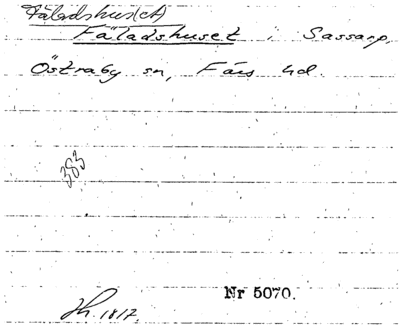 Fäladshus(et)
Fäladshuset i Sassarp,
Östraby sn, Färs hd.
383
Nr 5070.
Jh. 1817.